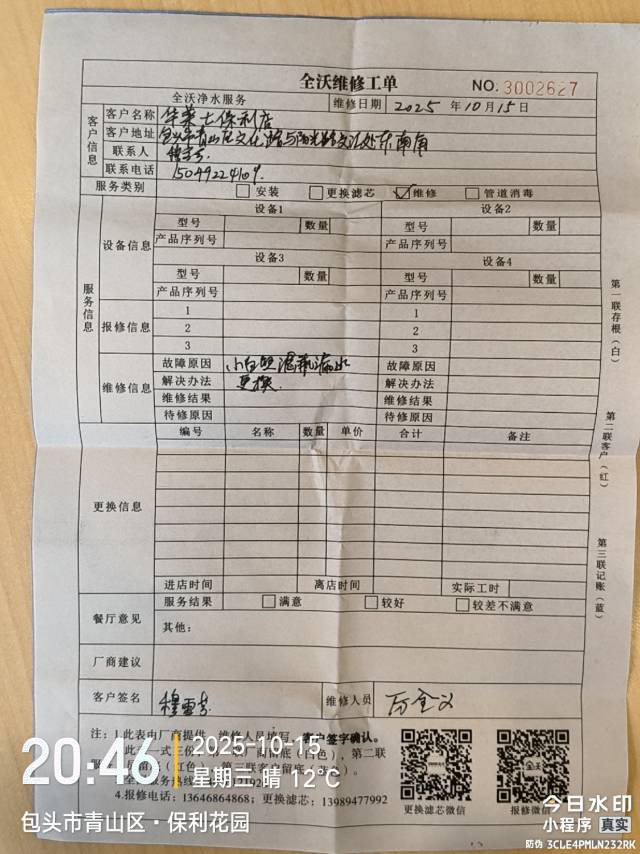 全沃维修工单
NO. 3002627
全沃净水服务 维修日期 2025 年 10 月 15 日
客户信息
客户名称 华莱士保利店
客户地址 包头市青山区文化路与阳光路交汇处东南角
联系人 穆雪芳
联系电话 15049224109
服务类别 安装 更换滤芯 维修 管道消毒
服务信息
设备信息
设备1 设备2
型号 数量 型号 数量
产品序列号 产品序列号
设备3 设备4
型号 数量 型号 数量
产品序列号 产品序列号
报修信息
1 1
2 2
3 3
维修信息
故障原因 小白 滤瓶漏水 故障原因
解决办法 更换 解决办法
维修结果 维修结果
待修原因 待修原因
更换信息
编号 名称 数量 单价 合计 备注
进店时间 离店时间 实际工时
餐厅意见
服务结果 满意 较好 较差不满意
其他:
厂商建议
客户签名 穆雪芳 维修人员
第一联存根(白)
第二联客户(红)
第三联记账(蓝)
注:1.此表由厂商提供,维修人员填写,客户签字确认。
2.此表一式三份 留底(白色),第二联
(红色),第三联客户留底(蓝色)。
4.报修电话:13646864868;更换滤芯:13989477992
更换滤芯微信 报修微信
全沃
20:46
2025-10-15
星期三 晴 12℃
包头市青山区·保利花园
今日水印
小程序 真实
防伪 3CLE4PMLN232RK